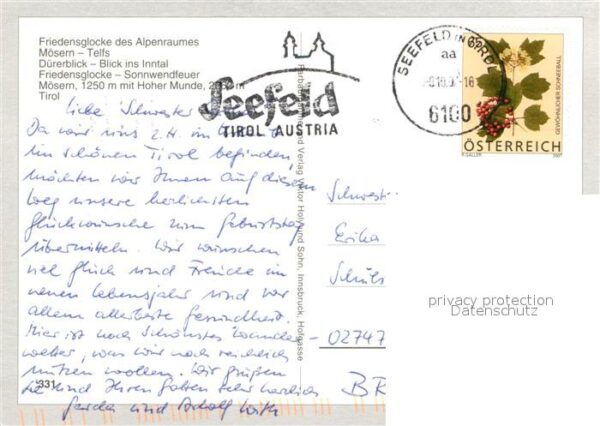 Friedensglocke des Alpenraumes
Mösern – Telfs
Dürerblick – Blick ins Inntal
Friedensglocke – Sonnwendfeuer
Mösern, 1250 m mit Hoher Munde
Tirol
Seefeld
TIROL AUSTRIA
SEEFELD IN TIROL
aa
6100
GEWÖHNLICHER SCHNEEBALL
ÖSTERREICH
2007
Liebe Schwester
Da wir uns z.Zt. im
im schönen Tirol befinden,
möchten wir Ihnen auf diesem
Weg unsere herzlichsten
Glückwünsche zum Geburtstag
übermitteln. Wir wünschen
viel Glück und Freude im
neuen Lebensjahr und vor
allem allerbeste Gesundheit.
Hier ist noch schönstes Wander-
wetter, was wir noch reichlich
nutzen wollen. Wir grüßen
Sie und Ihren Gatten sehr herzlich
Gerda und Adolf
331
Verlag Viktor Hohlwund Sohn, Innsbruck, Hofgasse
Schwester
Erika
Schul
02747
privacy protection
Datenschutz